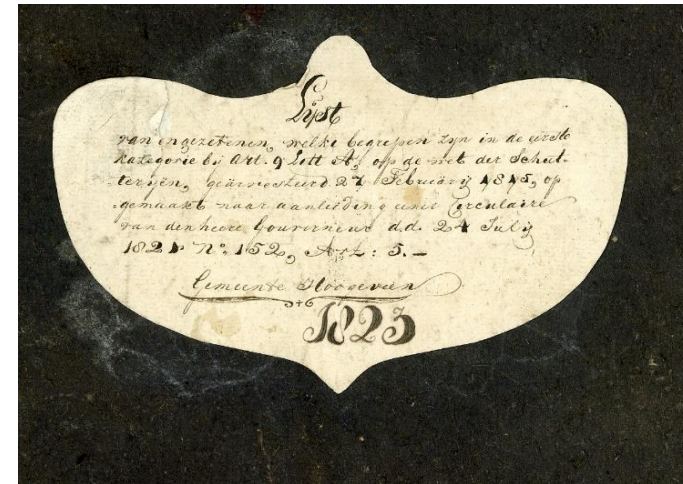 Lijst
van ingezetenen, welke begrepen zyn in de eerste
kategorie bij Art. 9 Lett A, op de wet der Schut-
terijën, geärresteerd 27 Februarij 1815, op
gemaakt naar aanleiding eener Circulaire
van den heere Gouverneur d.d. 24 Julij
1821 N.º 152, Art: 5.—
Gemeente Hoogeveen
1823